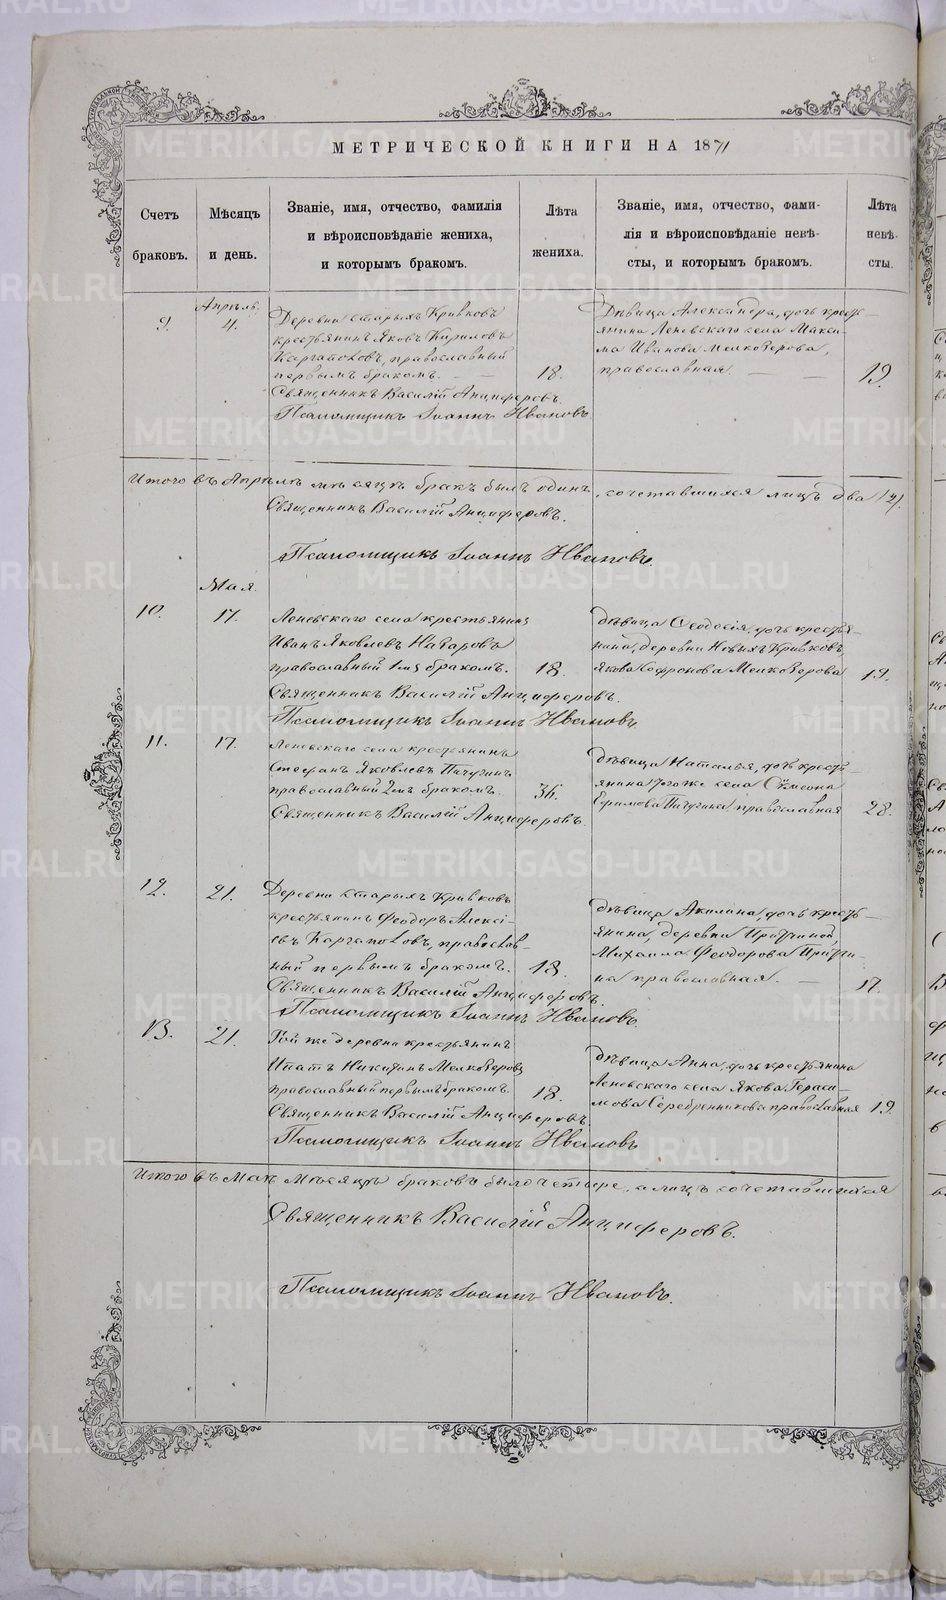 МЕТРИЧЕСКОЙ КНИГИ НА 1871
Счетъ браковъ.
Мѣсяцъ и день.
Званіе, имя, отчество, фамилія
и вѣроисповѣданіе жениха,
и которымъ бракомъ.
Лѣта жениха.
Званіе, имя, отчество, фами-
лія и вѣроисповѣданіе невѣ-
сты, и которымъ бракомъ.
Лѣта невѣ-
сты.
9.
Апрѣль.
4.
Деревни Старыхъ Кривковъ
крестьянинъ Яковъ Кириловъ
Каргаполовъ, православный
первымъ бракомъ.
18.
Дѣвица Александра, дочь кресть-
янина Леневскаго села Макси-
ма Иванова Мелкозерова,
православная.
19.
Священникъ Василій Анциферовъ.
Псаломщикъ Іоаннъ Ивановъ
Итого въ Апрѣлѣ мѣсяцѣ бракъ былъ одинъ, сочетавшихся лицъ два /2/.
Священникъ Василій Анциферовъ.
Псаломщикъ Іоаннъ Ивановъ.
Мая.
10.
17.
Леневскаго села крестьянинъ
Иванъ Яковлевъ
православный 1мъ бракомъ.
18.
дѣвица Ѳеодосія, дочь кресть-
янина, деревни Новыхъ Кривковъ
Якова Софронова Мелкозерова
19.
Священникъ Василій Анциферовъ.
Псаломщикъ Іоаннъ Ивановъ
11.
17.
Леневскаго села крестьянинъ
Стефанъ Яковлевъ Пичугинъ
православный 2мъ бракомъ.
36.
дѣвица Наталья, дочь кресть-
янина тогоже села Сѵмеона
Ефимова Пичугина православная
28.
Священникъ Василій Анциферовъ.
12.
21.
Деревни Старыхъ Кривковъ
крестьянинъ Феодоръ Алексѣ-
евъ Каргаполовъ, православ-
ный первымъ бракомъ.
18.
дѣвица Акилина, дочь кресть-
янина, деревни
Михаила Феодорова
на православная.
17.
Священникъ Василій Анциферовъ.
Псаломщикъ Іоаннъ Ивановъ.
13.
21.
Той же деревни крестьянинъ
Ипатъ Никитинъ Мелкозеровъ
православный первымъ бракомъ.
18.
дѣвица Анна, дочь крестьянина
Леневскаго села Якова Гераси-
мова Серебренникова православная
19.
Священникъ Василій Анциферовъ.
Псаломщикъ Іоаннъ Ивановъ
Итого въ Маѣ Мѣсяцѣ браковъ было четыре, а лицъ сочетавшихся
Священникъ Василій Анциферовъ.
Псаломщикъ Іоаннъ Ивановъ.
METRIKI.GASO-URAL.RU